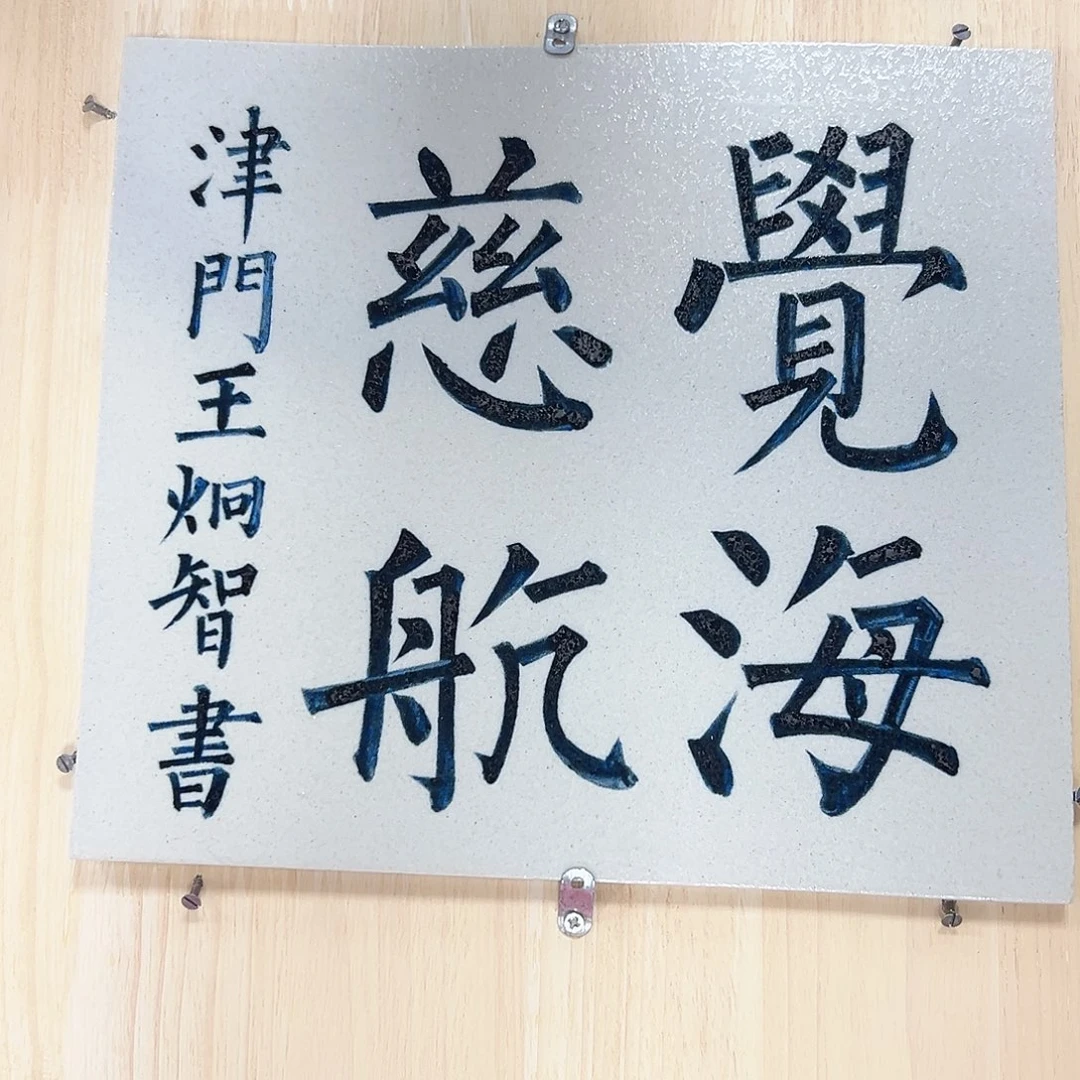 覺海
慈航
津門王炯智書